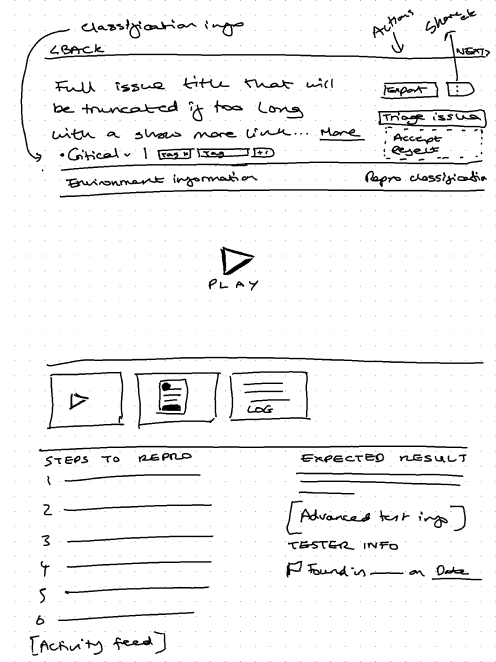 Classification info
Actions
Share etc
<BACK
NEXT>
Full issue title that will
be truncated if too long
with a show more link... More
Export
Triage issue
Accept
Reject
• Critical | Tag x Tag +1
Environment information
Repro classification
PLAY
LOG
STEPS TO REPRO
1
2
3
4
5
6
[Activity feed]
EXPECTED RESULT
[Advanced test info]
TESTER INFO
Found in on Date